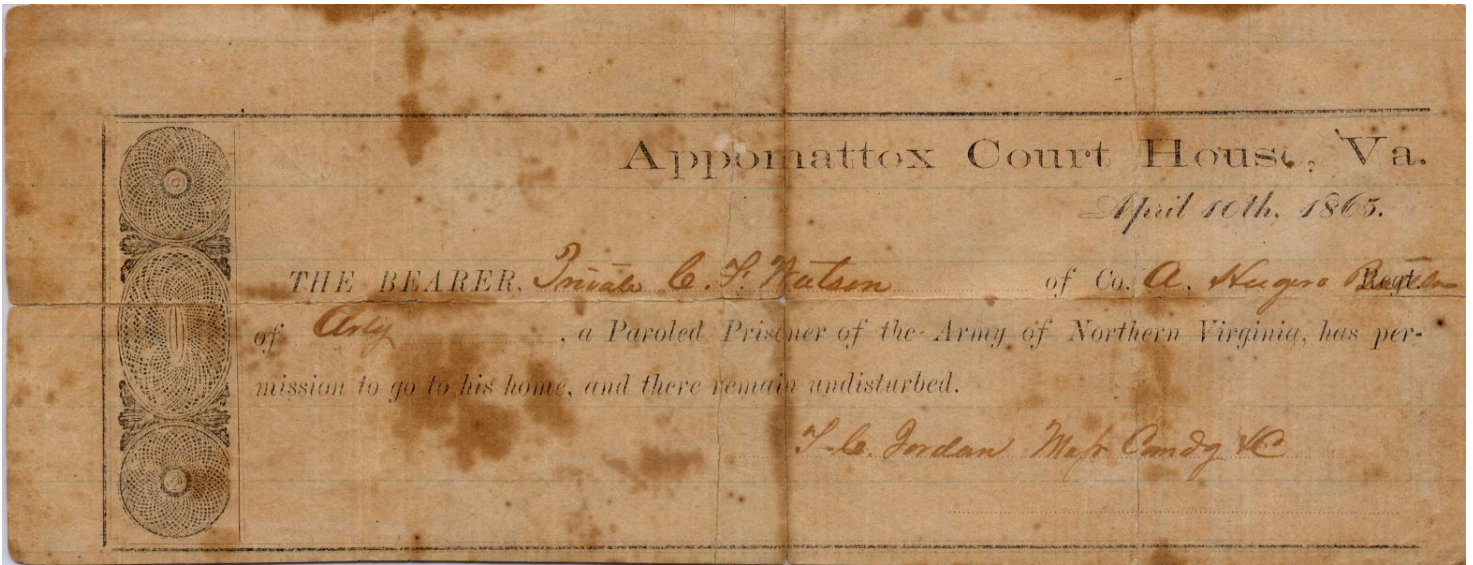 Appomattox Court House, Va.
April 10th, 1865.
THE BEARER, Private C. F. Watson of Co. A. Hugers Battln Regt.
of Arty , a Paroled Prisoner of the Army of Northern Virginia, has per-
mission to go to his home, and there remain undisturbed.
T. C. Jordan Majr Comdg &C